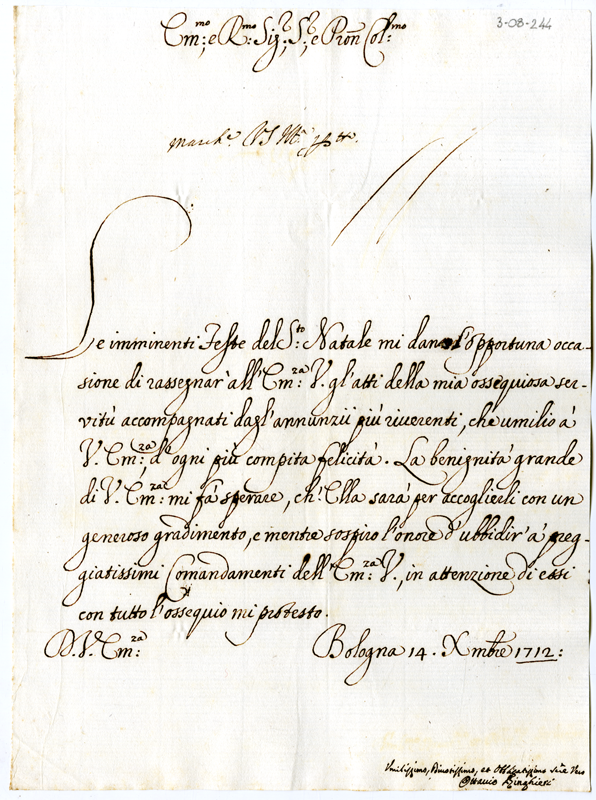 3-08-244
Em:mo e R:mo Sig:r, S:r, e Pron Col:mo
Le imminenti Feste del S:to Natale mi dan l'opportuna occa-
sione di rassegnar' all'Em:za V. gl'atti della mia ossequiosa ser-
vitù accompagnati dagl'annunzii più riverenti, che umilio à
V. Em:za d'ogni più compita felicità. La benignità grande
di V. Em:za mi fà sperare, ch'Ella sarà per accoglierli con un
generoso gradimento, e mentre sospiro l'onore d'ubbidir' a' preg-
giatissimi Comandamenti dell'Em:za V., in attenzione di essi
con tutto l'ossequio mi protesto.
D. V. Em:za
Bologna 14. Xmbre 1712:
Umilissimo, Divotissimo, et Obligatissimo Ser:e Vero
Ottavio